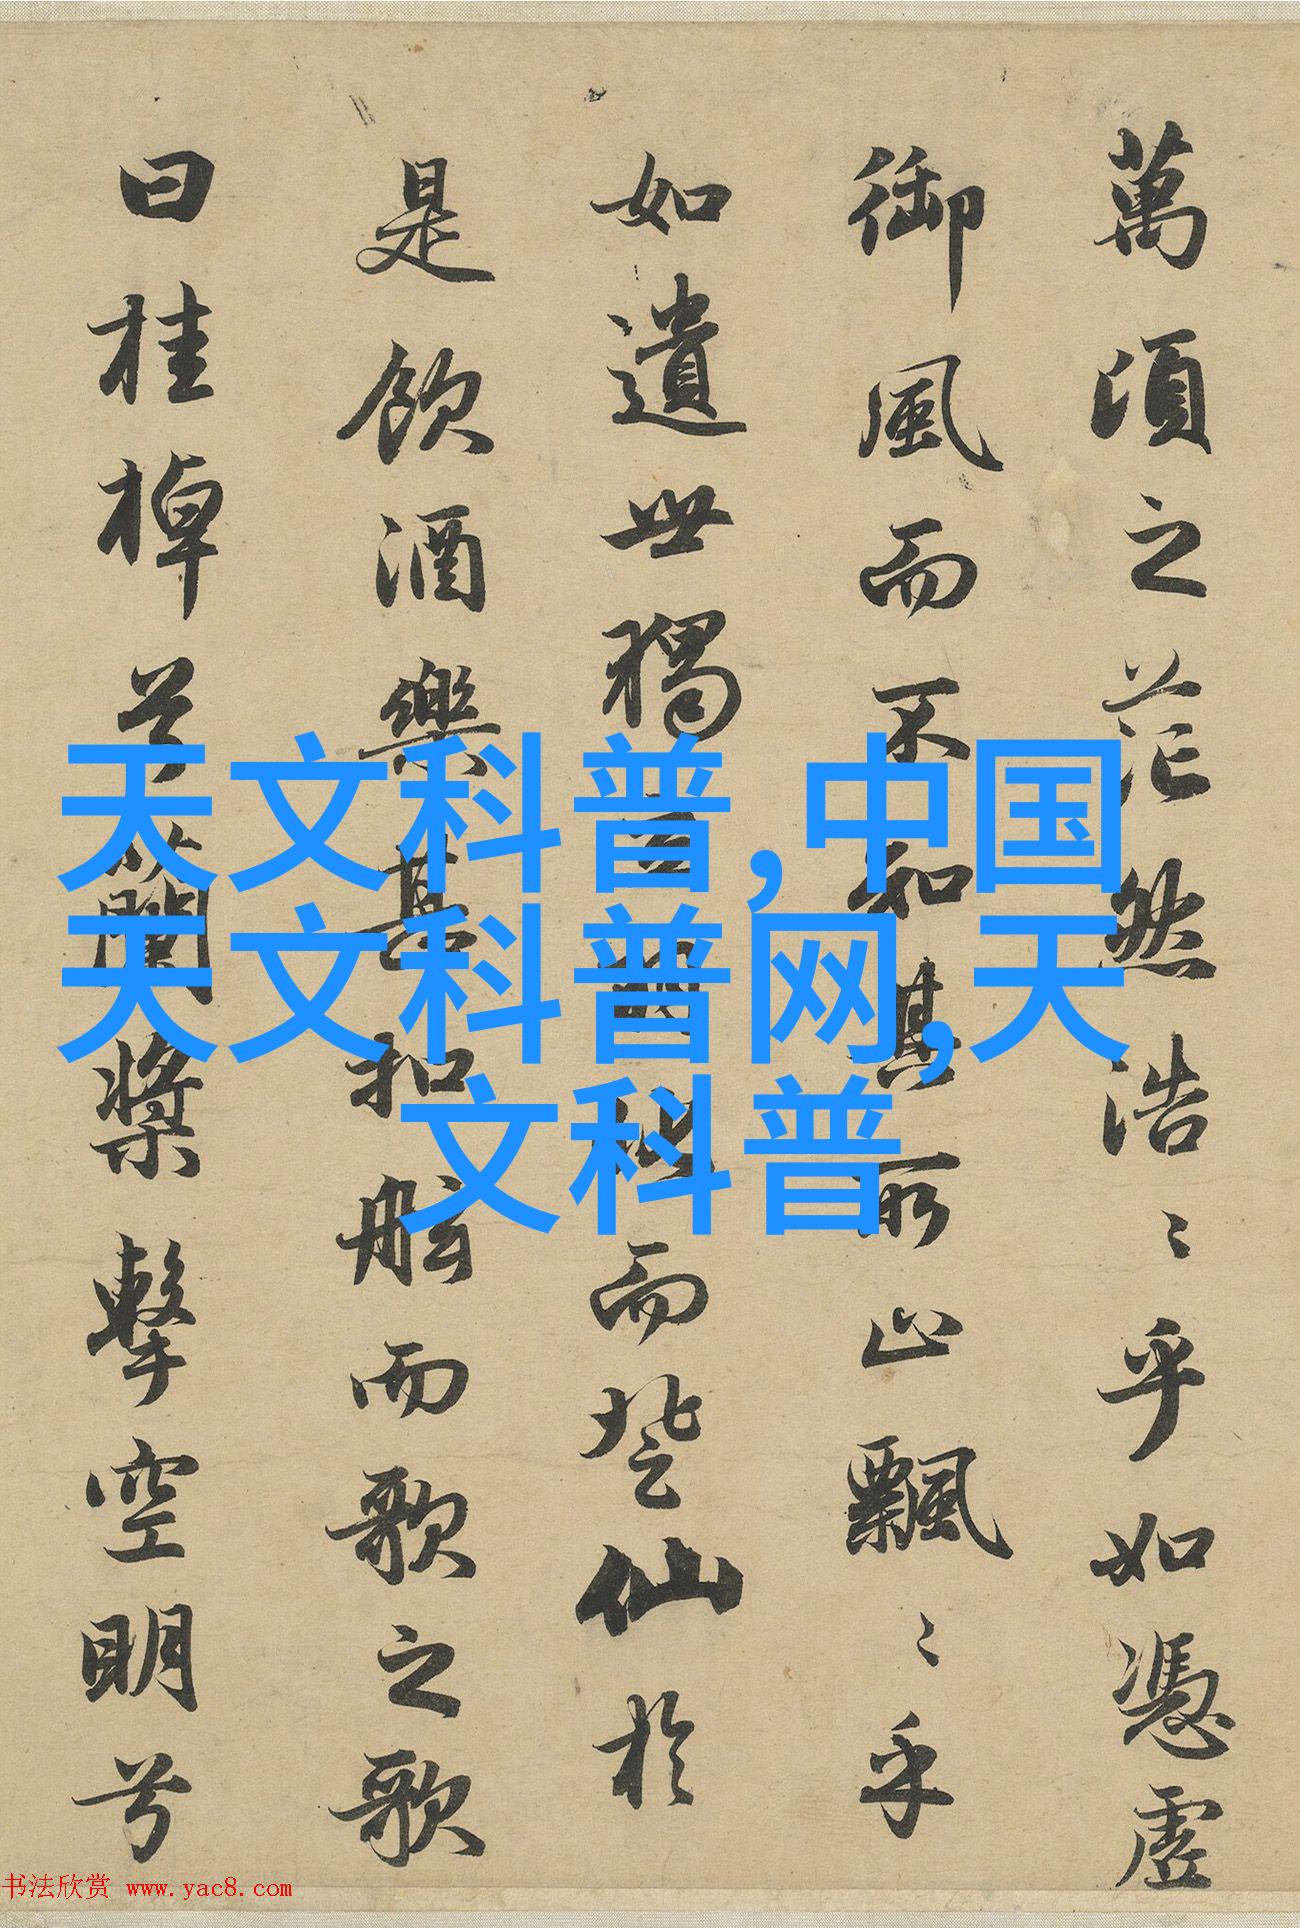 萬頃之茫然浩〻乎如憑虛
御風而不知其所止飄〻乎
如遺世獨立羽化而登仙於
是飲酒樂甚扣舷而歌之歌
曰桂棹兮蘭槳擊空明兮
天文科普,中国
天文科普网,天
文科普
书法欣赏 www.yac8.com